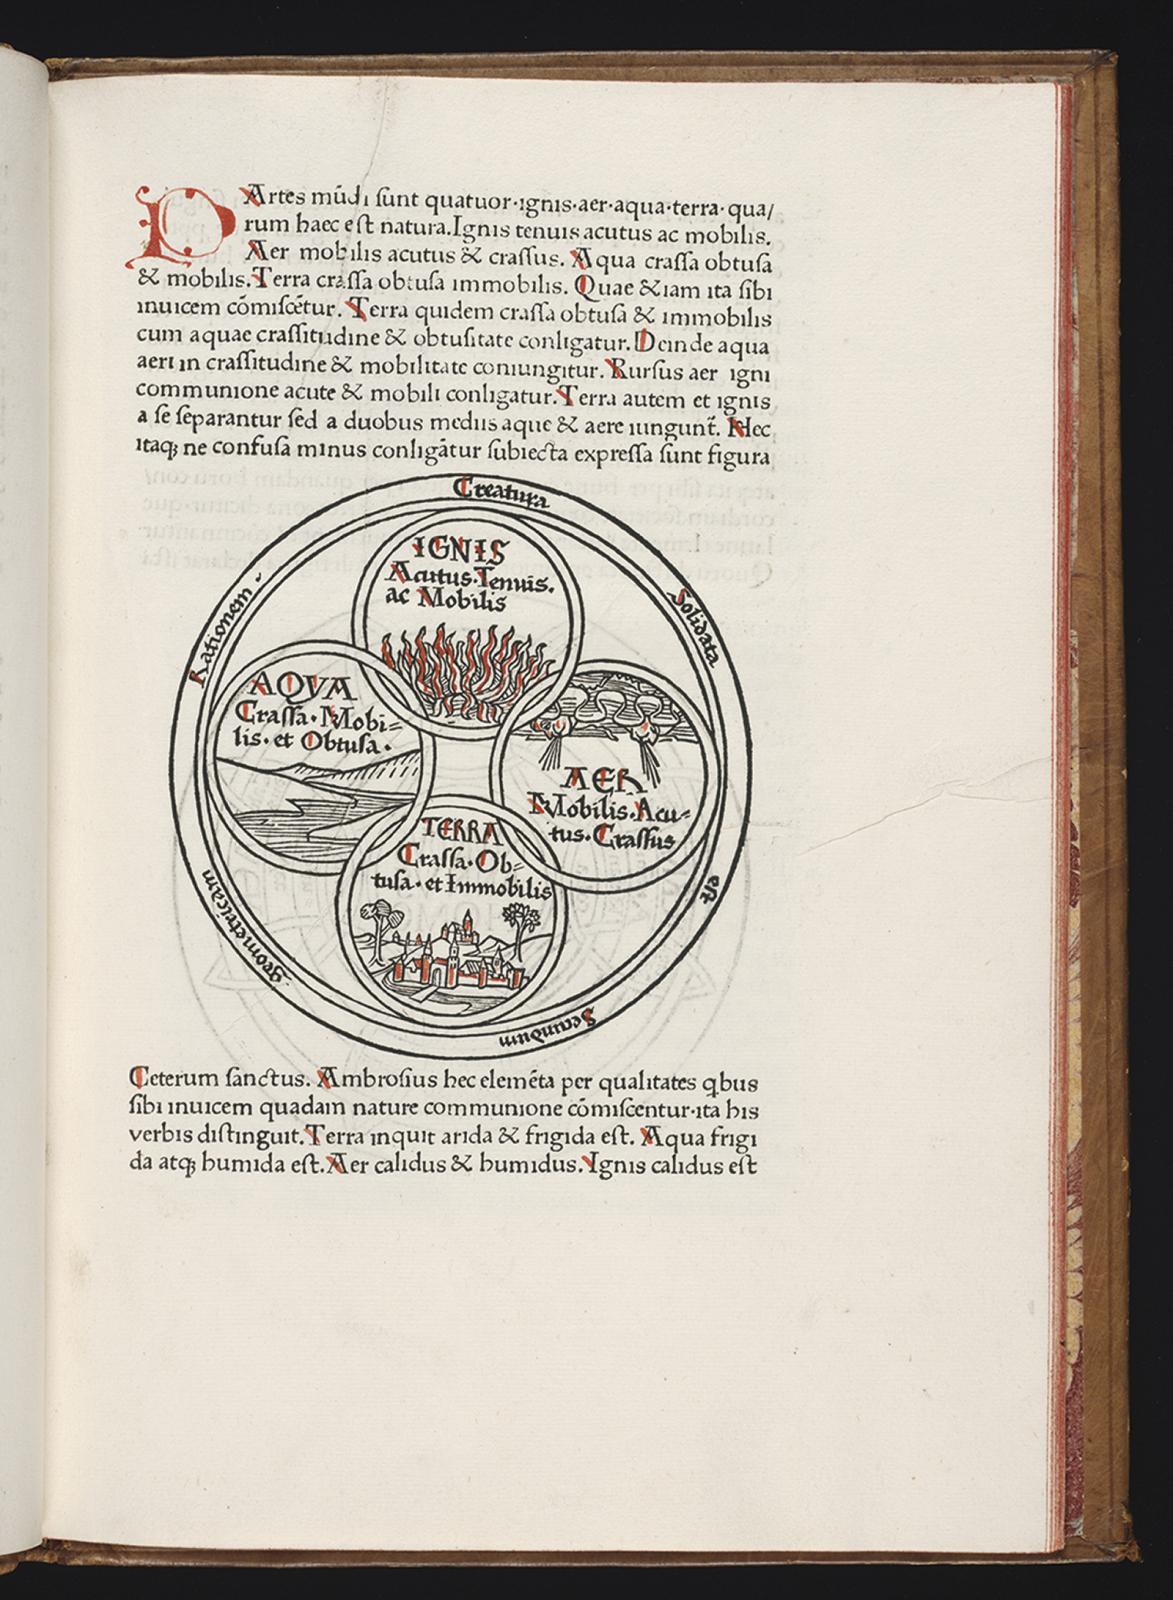 PArtes mūdi sunt quatuor·ignis·aer·aqua·terra·qua/
rum haec est natura.Ignis tenuis acutus ac mobilis.
Aer mobilis acutus & crassus. Aqua crassa obtusa
& mobilis.Terra crassa obtusa immobilis. Quae &iam ita sibi
inuicem cōmiscētur. Terra quidem crassa obtusa & immobilis
cum aquae crassitudine & obtusitate conligatur.Deinde aqua
aeri in crassitudine & mobilitate coniungitur. Rursus aer igni
communione acute & mobili conligatur.Terra autem et ignis
a se separantur sed a duobus mediis aque & aere iungunt̄. Hec
itaqꝫ ne confusa minus conligātur subiecta expressa sunt figura
Creatura
Solidata
est
Secundum
geometricam
Rationem
IGNIS
Acutus·Tenuis.
ac Mobilis
AQVA
Crassa·Mobi=
lis·et Obtusa·
AER
Mobilis·Acu=
tus·Crassus
TERRA
Crassa·Ob=
tusa·et Immobilis
Ceterum sanctus. Ambrosius hec elemēta per qualitates qbus
sibi inuicem quadam nature communione cōmiscentur·ita his
verbis distinguit.Terra inquit arida & frigida est. Aqua frigi
da atqꝫ humida est.Aer calidus & humidus.Ignis calidus est